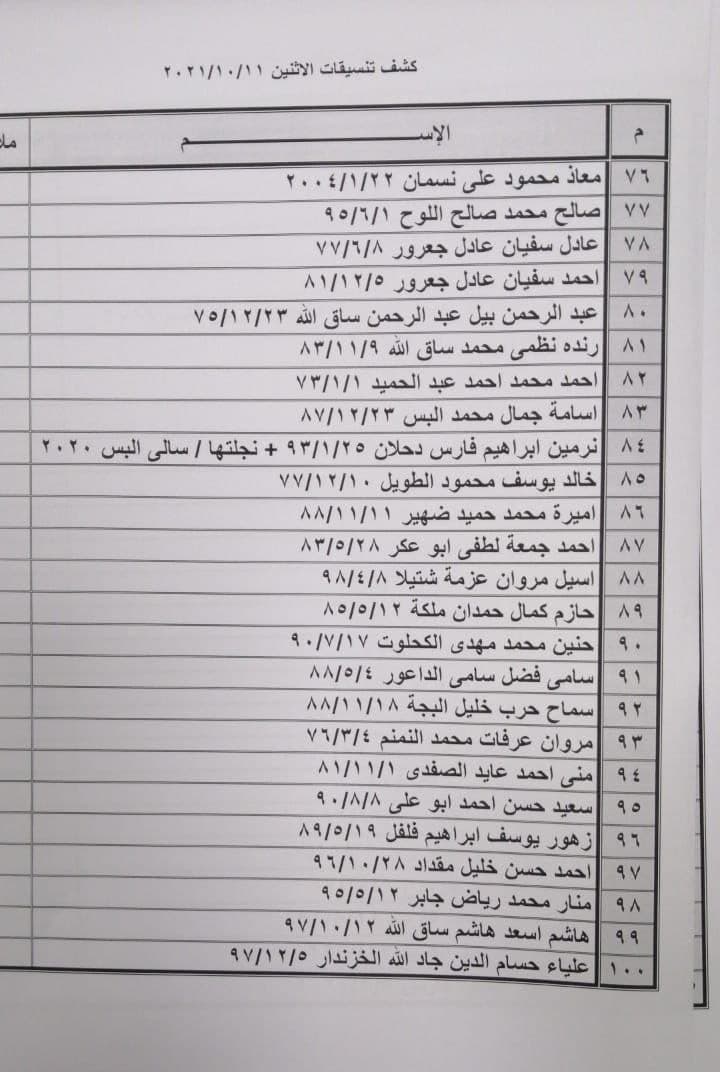 كشف تنسيقات الاثنين ٢٠٢١/١٠/١١
م الإســــــــم ملا
٧٦ معاذ محمود على نسمان ٢٠٠٤/١/٢٢
٧٧ صالح محمد صالح اللوح ٩٥/٦/١
٧٨ عادل سفيان عادل جعرور ٧٧/٦/٨
٧٩ احمد سفيان عادل جعرور ٨١/١٢/٥
٨٠ عبد الرحمن بيل عبد الرحمن ساق الله ٧٥/١٢/٢٣
٨١ رنده نظمى محمد ساق الله ٨٣/١١/٩
٨٢ احمد محمد احمد عبد الحميد ٧٣/١/١
٨٣ اسامة جمال محمد البس ٨٧/١٢/٢٣
٨٤ نرمين ابراهيم فارس دحلان ٩٣/١/٢٥ + نجلتها / سالى البس ٢٠٢٠
٨٥ خالد يوسف محمود الطويل ٧٧/١٢/١٠
٨٦ اميرة محمد حميد ضهير ٨٨/١١/١١
٨٧ احمد جمعة لطفى ابو عكر ٨٣/٥/٢٨
٨٨ اسيل مروان عزمة شتيلا ٩٨/٤/٨
٨٩ حازم كمال حمدان ملكة ٨٥/٥/١٢
٩٠ حنين محمد مهدى الكحلوت ٩٠/٧/١٧
٩١ سامى فضل سامى الداعور ٨٨/٥/٤
٩٢ سماح حرب خليل البجة ٨٨/١١/١٨
٩٣ مروان عرفات محمد النمنم ٧٦/٣/٤
٩٤ منى احمد عايد الصفدى ٨١/١١/١
٩٥ سعيد حسن احمد ابو على ٩٠/٨/٨
٩٦ زهور يوسف ابراهيم فلفل ٨٩/٥/١٩
٩٧ احمد حسن خليل مقداد ٩٦/١٠/٢٨
٩٨ منار محمد رياض جابر ٩٥/٥/١٢
٩٩ هاشم اسعد هاشم ساق الله ٩٧/١٠/١٢
١٠٠ علياء حسام الدين جاد الله الخزندار ٩٧/١٢/٥